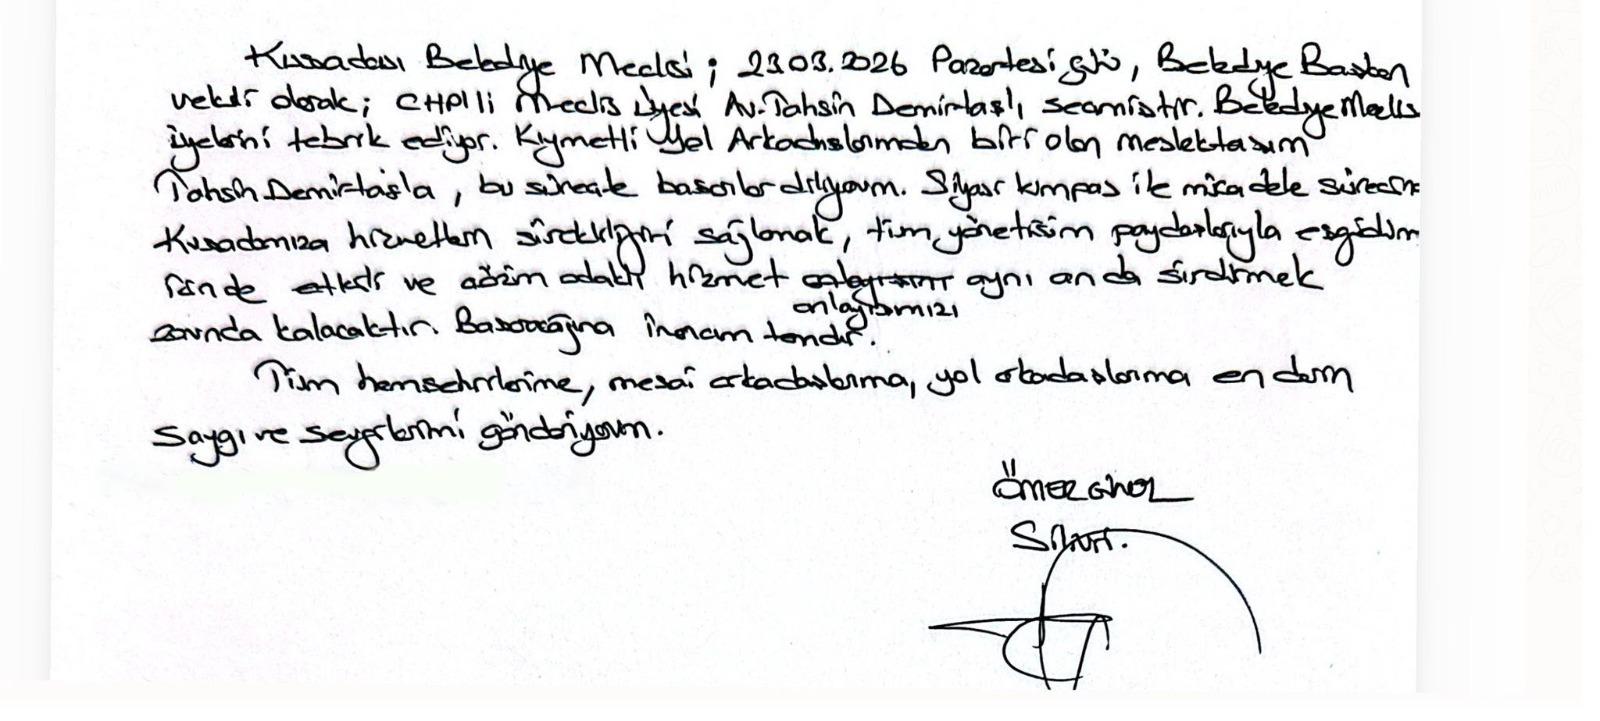 Kuşadası Belediye Meclisi; 23.03.2026 Pazartesi günü, Belediye Başkan
vekili olarak; CHP'li Meclis üyesi Av. Tahsin Demirtaş'ı seçmiştir. Belediye Meclis
üyelerini tebrik ediyor. Kıymetli Yol Arkadaşlarımdan biri olan meslektaşım
Tahsin Demirtaş'a, bu süreçte başarılar diliyorum. Siyasi kumpas ile mücadele sürecini
Kuşadamıza hizmetlerin sürekliliğini sağlamak, tüm yönetişim paydaşlarıyla eşgüdüm
içinde etkili ve çözüm odaklı hizmet aynı anda sürdürmek
anlayışımızı
zorunda kalacaktır. Başaracağına inancım tamdır.
Tüm hemşehrilerime, mesai arkadaşlarıma, yol arkadaşlarıma en derin
saygı ve sevgilerimi gönderiyorum.
ÖMER GÜNEL
Silivri.